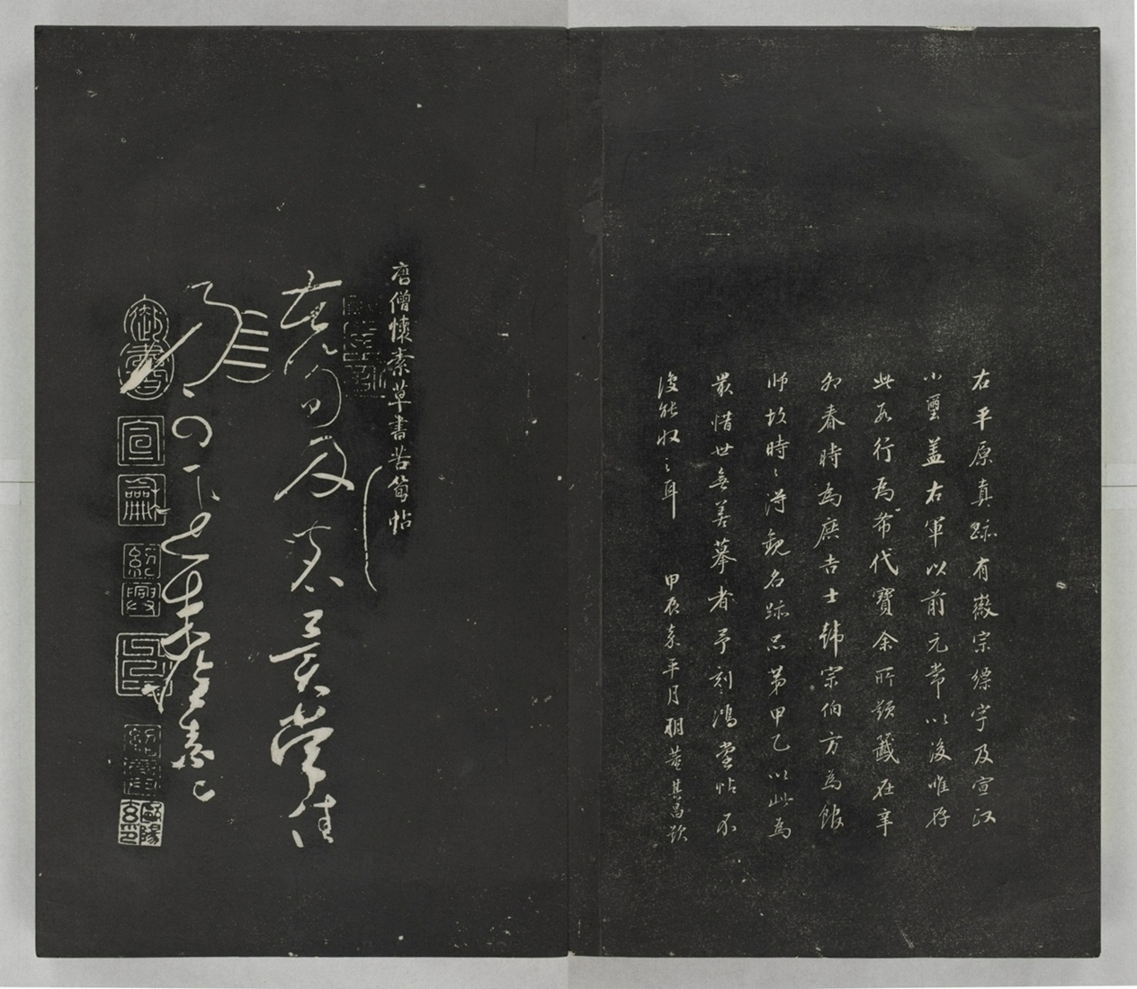 右平原真跡有徽宗縹字及宣和
小璽蓋右軍以前元常以後唯存
此數行為希代寶余所題籤在辛
卯春時為庶吉士韓宗伯方為館
師故時時得觀名跡品第甲乙以此為
最惜世無善摹者予刻鴻堂帖不
復能收之耳　甲辰嘉平月明董其昌跋
唐僧懷素草書苦筍帖
苦筍及茗異常佳
乃可逕來懷素上
御書
宣
龢
紹興
歐陽玄印